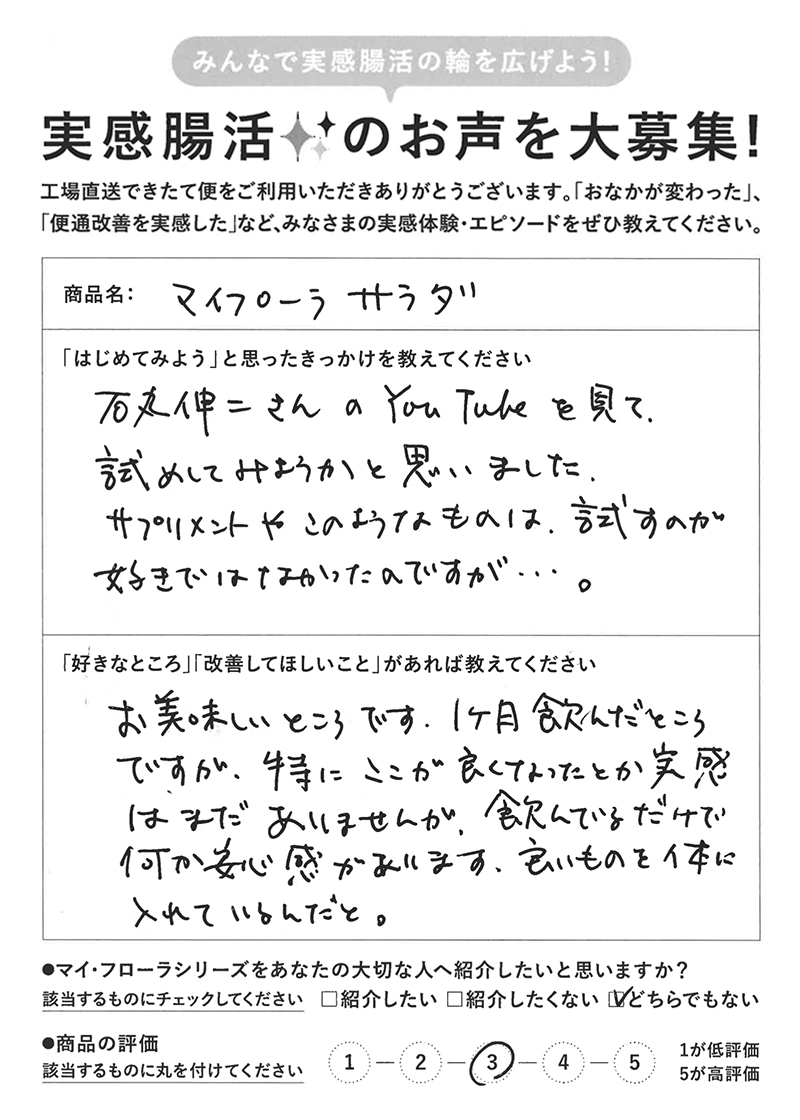 みんなで実感腸活の輪を広げよう!
実感腸活のお声を大募集!
工場直送できたて便をご利用いただきありがとうございます。「おなかが変わった」、
「便通改善を実感した」など、みなさまの実感体験・エピソードをぜひ教えてください。
商品名: マイフローラ サラダ
「はじめてみよう」と思ったきっかけを教えてください
石丸伸二さんのYouTubeを見て、
試めしてみようかと思いました、
サプリメントやこのようなものは、試すのが
好きではなかったのですが…。
「好きなところ」「改善してほしいこと」があれば教えてください
お美味しいところです、1ヶ月飲んだところ
ですが、特にここが良くなったとか実感
はまだありませんが、飲んでいるだけで
何か安心感があります、良いものを体に
入れているんだと。
●マイ・フローラシリーズをあなたの大切な人へ紹介したいと思いますか?
該当するものにチェックしてください □紹介したい □紹介したくない ☑どちらでもない
●商品の評価
該当するものに丸を付けてください 1 2 3 4 5 1が低評価
5が高評価